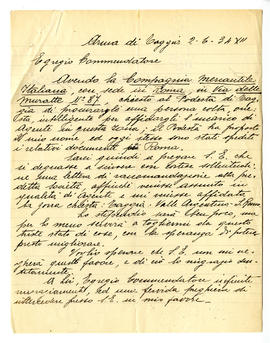 Arma di Taggia 2-6-34 XII
Egregio Commendatore
Avendo la Compagnia Mercantile
Italiana, con sede in Roma, in Via delle
Muratte, N° 87, chiesto al Podestà di Tag-
gia di procurargli una persona colta, one-
sta intelligente per affidargli l'incarico di
Agente in questa zona, il Podestà ha proposto
il mio nome, ed oggi stesso sono stati spediti
i relativi documenti a Roma.
Sarei quindi a pregare S. E. che
si degnasse d'inviare con cortese sollecitudi-
ne una lettera di raccomandazione alla pre-
detta Società, affinchè venissi assunto in
qualità di Agente e mi venisse affidata
la zona chiesta: Taggia - Valle Argentina
Lo stipendio sarà ben poco ma
per lo meno servirà a togliermi da questo
triste stato di cose, con la speranza di poter
presto migliorare.
Voglio sperare che S. E. non mi ne-
gherà questo favore, e di ciò lo ringrazio sen-
titamente.
A Lei, Egregio Commendatore infiniti
ringraziamenti, ed una fervida preghiera di
intercedere presso S. E. in mio favore.